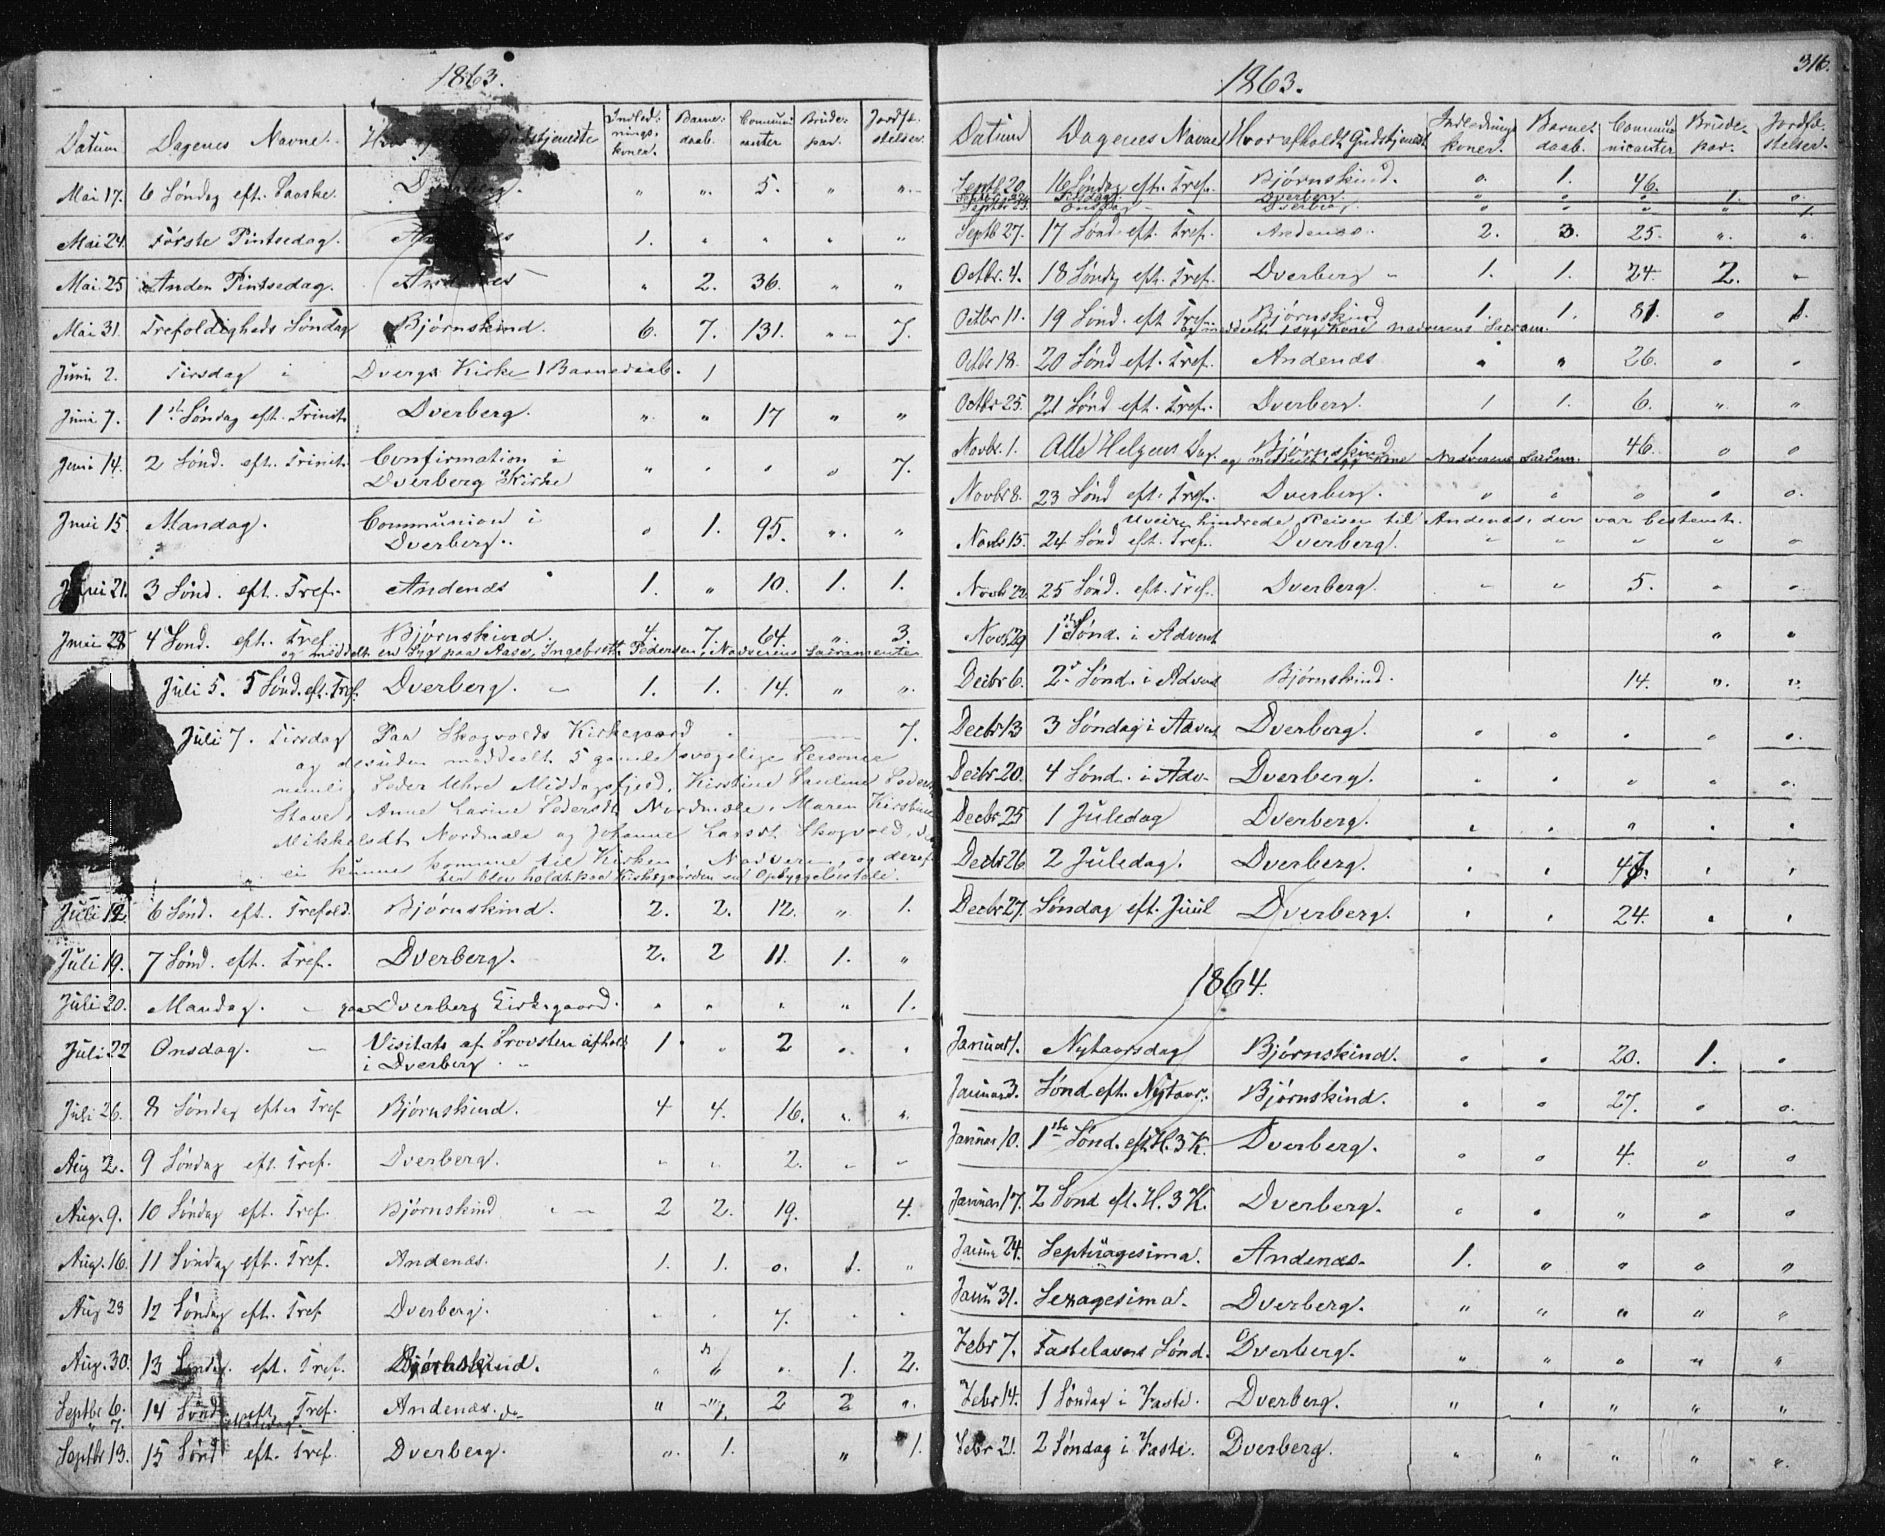 1863.
Datum Dagenes Navne. Indled:nings:koner. Barne:daab. Communi canter Brude:par. Jordfæ stelser.
Mai 17. 6 Søndag eft. Paaske. " " 5. " "
Mai 24. Første Pintsedag. 1. " " " "
Mai 25 Anden Pintsedag. Andenes " 2. 36. " "
Mai 31. Trefoldigheds Søndag Bjørnskind. 6. 7. 131. " 7.
Juni 2. Tirsdag i Dvergs Kirke 1 Barnedaab. 1
Juni 7. 1st Søndag eft. Trinit. Dverberg. " " 17 " "
Juni 14. 2 Sønd. eft. Trinit. Confirmation i " " " " 7.
Dverberg Kirke
Juni 15 Mandag. Communion i " 1. 95. " "
Dverberg.
Juni 21. 3 Sønd. eft. Tref. Andenæs 1. " 10. 1. 1.
Juni 28 4 Sønd. eft. Tref. Bjørnskind. 4. 7. 64. " 3.
og meddelt en Syg paa Aase, Ingebreth Pedersen, Nadverens Sacramenter
Juli 5. 5 Sønd. eft. Tref. Dverberg. 1. 1. 14. " "
Juli 7. Tirsdag Paa Skogvolds Kirkegaard 7.
og desuden meddeelt 5 gamle svagelige Personer
nemlig Peder Uhre Middagsfjeld, Kirstine Pauline
Stave, Anne Larine Pedersdt. Nordmæle, Maren Kirstine
Mikkelsdt. Nordmæle og Johanne Larsdt. Skogvold,
ei kunne komme til Kirken, Nadveren, og
blev holdt paa Kirkegaarden en Opbyggelsestale.
Juli 12. 6 Sønd. eft. Trefold. Bjørnskind. 2. 2. 12. " 1.
Juli 19. 7 Sønd. eft. Tref. Dverberg. 2. 2 11. 1. "
Juli 20. Mandag. paa Dverberg Kirkegaard. " " " " 1.
Juli 22 Onsdag. Visitats af Provsten afholdt 1 " 2 " "
i Dverberg
Juli 26. 8 Søndag efter Tref Bjørnskind. 4 4. 16. " "
Aug 2. 9 Søndag eft. Tref. Dverberg. " " 2. " "
Aug. 9. 10 Søndag eft. Tref. Bjørnskind 2 2. 19. " 4.
Aug. 16. 11 Søndag eft. Tref. Andenæs. 1. 1. o. 1. "
Aug 23 12 Søndag eft. Tref Dverberg. " " 7. " "
Aug. 30. 13 Søndag eft. Tref. Bjørnskind. " " " 1. 2.
Septbr 6. 14 Sønd eft. Tref. Andenæs. " " 2 2 "
" 7. Mandag. do 1.
Septbr 13. 15 Sønd eft. Tref. Dverberg. " 1. " 1.
316.
1863.
Datum Dagenes Navne Hvor afholdt Gudstjeneste Indlednings koner. Barne daab. Commu nicanter Brude par. Jordfæ stelser.
Septb 20. 16 Søndag eft. Tref. Bjørnskind. o. 1. 46.
Tirsdag Dverberg. " " " 1. o.
Septbr 23. Onsdag Dverberg " " " " 1.
Septb 27. 17 Sønd eft. Tref. Andenæs. 2. 3. 25. " "
Octbr. 4. 18 Søndg eft. Tref. Dverberg 1. 1. 24. 2. "
Octbr 11. 19 Sønd. eft Tref. Bjørnskind 1. 1. 81. o 1.
og meddeelt 1 syg Kone Nadverens Sacram.
Octbr 18. 20 Sønd eft. Tref. Andenæs " " 26. o o
Octbr 25. 21 Sønd eft. Tref. Dverberg. 1 1. 6. " "
Novbr. 1. Alle Helgens Dag. Bjørnskind 1 o 46. o o
og meddelt 1 syg Kone Nadverens Sacram.
Novbr 8. 23 Sønd eft. Tref. Dverberg. o o o o o.
Uveir hindrede Reisen til Andenæs, der var bestemt.
Novbr 15. 24 Sønd eft. Tref. Dverberg. " " " " o
Novbr 22. 25 Sønd. eft. Tref. Dverberg. " " 5. " o
Novb 29 1ste Sønd. i Advent " "
Decbr 6. 2d Sønd. i Advent Bjørnskind. 14. " "
Decbr 13 3 Søndag i Advent Dverberg. o o . o o.
Decbr 20. 4 Sønd. i Adv. Dverberg. o o " o o
Decbr 25 1 Juledag Dverberg. " " " " "
Decbr 26 2 Juledag. Dverberg. " " 47. " "
Decbr 27. Søndag eft. Juul Dverberg. " " 24. " "
1864.
Januar 1. Nytaarsdag Bjørnskind. o o 20. 1. o
Januar 3. Sønd eft. Nytaar. Bjørnskind. o o 27. o o.
Januar 10. 1ste Sønd. eft H. 3 K. Dverberg. o o 4. o o
Januar 17. 2 Sønd eft. H. 3 K. Dverberg. o o " o o
Januar 24. Septuagesima. Andenæs. 1. o o o o
Janu 31. Sexagesima. Dverberg. " " " " "
Febr 7. Fastelavens Sønd. Dverberg. " " o " "
Febr 14. 1 Søndag i Faste. Dverberg. " " " " "
Febr 21. 2 Søndag i Faste. Dverberg. " " " " "